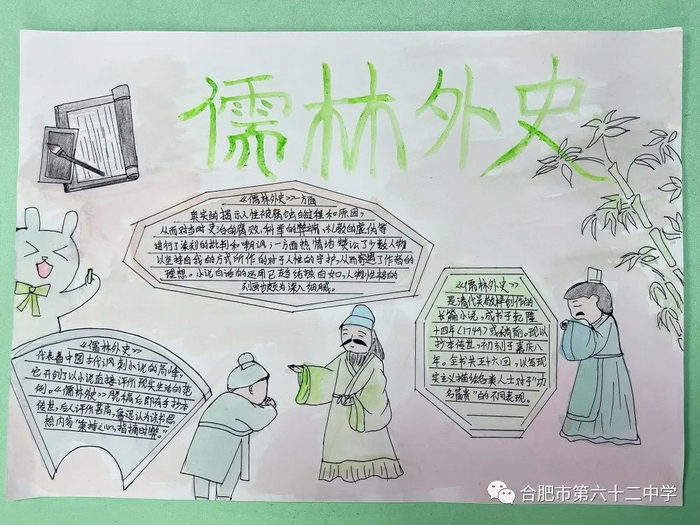 儒林外史
《儒林外史》一方面
真实的揭示人性被腐蚀的过程和原因,
从而对当时吏治的腐败、科举的弊端、礼教的虚伪等
进行了深刻的批判和嘲讽;一方面热情地歌颂了少数人物
以坚持自我的方式所作的对于人性的守护,从而寄寓了作者的
理想。小说白话的运用已趋纯熟自如,人物性格的
刻画也颇为深入细腻。
《儒林外史》
是清代吴敬梓创作的
长篇小说,成书于乾隆
十四年(1749)或稍前。现以
抄本传世,初刻于嘉庆八
年。全书共五十六回,以写实
主义描绘各类人士对于"功
名富贵"的不同表现。
《儒林外史》
代表着中国古代讽刺小说的高峰,
它开创了以小说直接评价现实生活的范
例。《儒林外史》脱稿后即有手抄本
传世,后人评价甚高,鲁迅认为该书思
想内容"秉持公心,指摘时弊"
合肥市第六十二中学